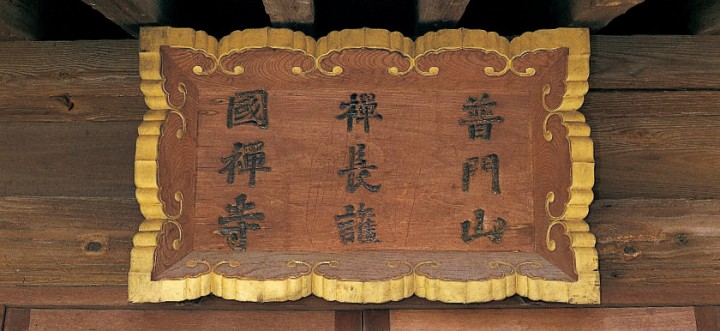 普門山
禪長護
國禪寺